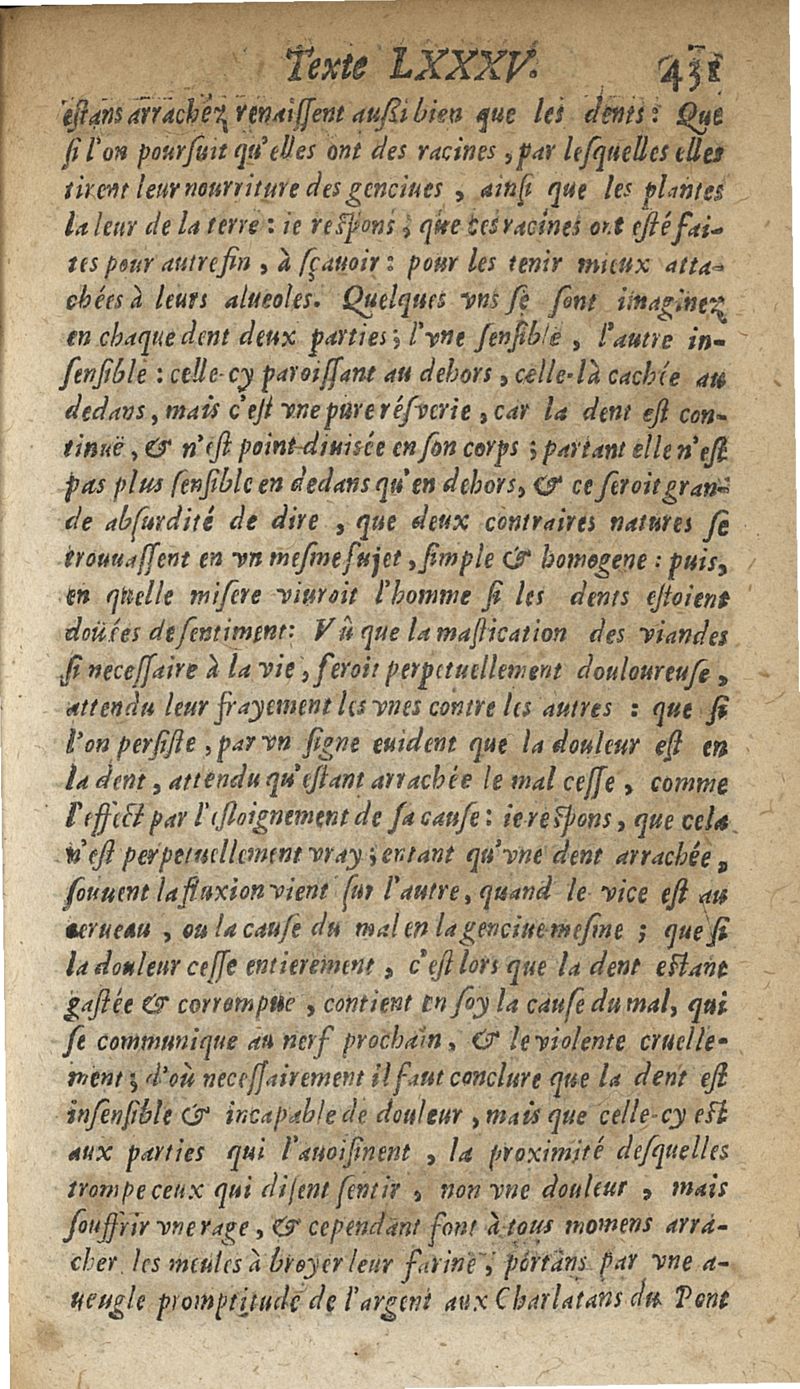 Texte LXXXV. 431
estans arrachéz renaissent aussi bien que les dents : Que
si l'on poursuit qu'elles ont des racines, par lesquelles elles
tirent leur nourriture des genciues, ainsi que les plantes
la leur de la terre : ie respons ; que ces racines ont esté fai-
tes pour autre fin, à sçauoir : pour les tenir mieux atta-
chées à leurs alueoles. Quelques vns se sont imaginez
en chaque dent deux parties ; l'vne sensible, l'autre in-
sensible : celle-cy paroissant au dehors, celle-là cachée au
dedans, mais c'est vne pure résverie, car la dent est con-
tinuë, & n'est point diuisée en son corps ; partant elle n'est
pas plus sensible en dedans qu'en dehors, & ce seroit gran-
de absurdité de dire, que deux contraires natures se
trouuassent en vn mesme sujet, simple & homogene : puis,
en quelle misere viuroit l'homme si les dents estoient
doüées de sentiment : Vû que la mastication des viandes
si necessaire à la vie, seroit perpetuellement douloureuse,
attendu leur frayement les vnes contre les autres : que si
l'on persiste, par vn signe euident que la douleur est en
la dent, attendu qu'estant arrachée le mal cesse, comme
l'effect par l'esloignement de sa cause : ie respons, que cela
n'est perpetuellement vray ; entant qu'vne dent arrachée,
souuent la fluxion vient sur l'autre, quand le vice est au
cerueau, ou la cause du mal en la genciue mesme ; que si
la douleur cesse entierement, c'est lors que la dent estant
gastée & corrompue, contient en soy la cause du mal, qui
se communique au nerf prochain, & le violente cruelle-
ment ; d'où necessairement il faut conclure que la dent est
insensible & incapable de douleur, mais que celle-cy est
aux parties qui l'auoisinent, la proximité desquelles
trompe ceux qui disent sentir, non vne douleur, mais
souffrir vne rage, & cependant font à tous momens arra-
cher les meules à broyer leur farine, portans par vne a-
ueugle promptitude de l'argent aux Charlatans du Pont